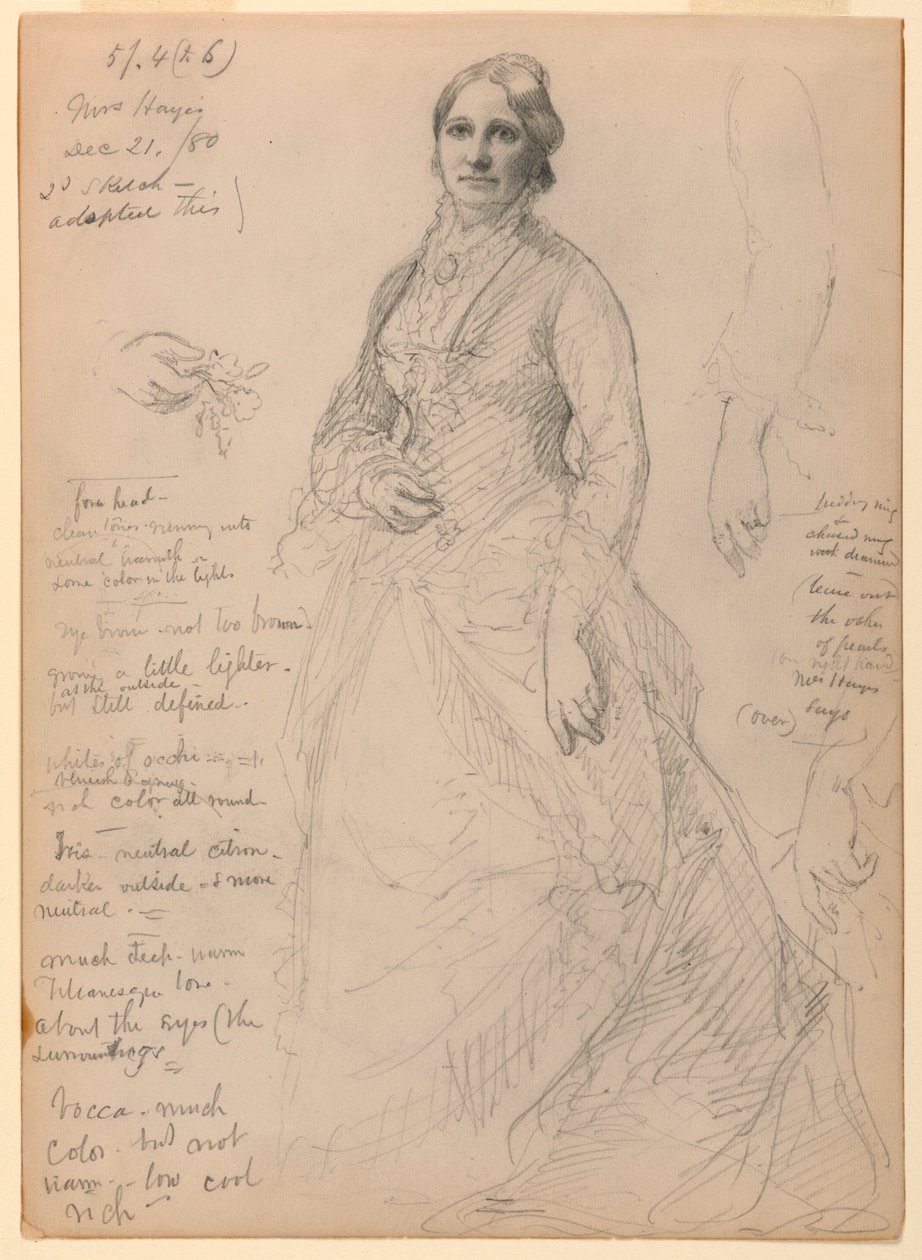 5/. 4 (& 6)
Mrs Hayes
Dec 21. /80
2d Sketch —
adopted this
fore head —
clean tones running into
neutral warmth
some color in the lights
eye brow - not too brown
growing a little lighter -
at the outside -
but still defined -
whites of occhi
blueish & gray -
rich color all round -
Iris - neutral citron -
darker outside - & more
neutral -
much deep - warm
Titianesque tone -
about the eyes (the
surroundings
bocca - much
color - but not
warm - low cool
rich
wedding ring
&
chased ring
not drawn
(leave out
the other
of pearls
(on right hand)
Mrs Hayes
says
(over)